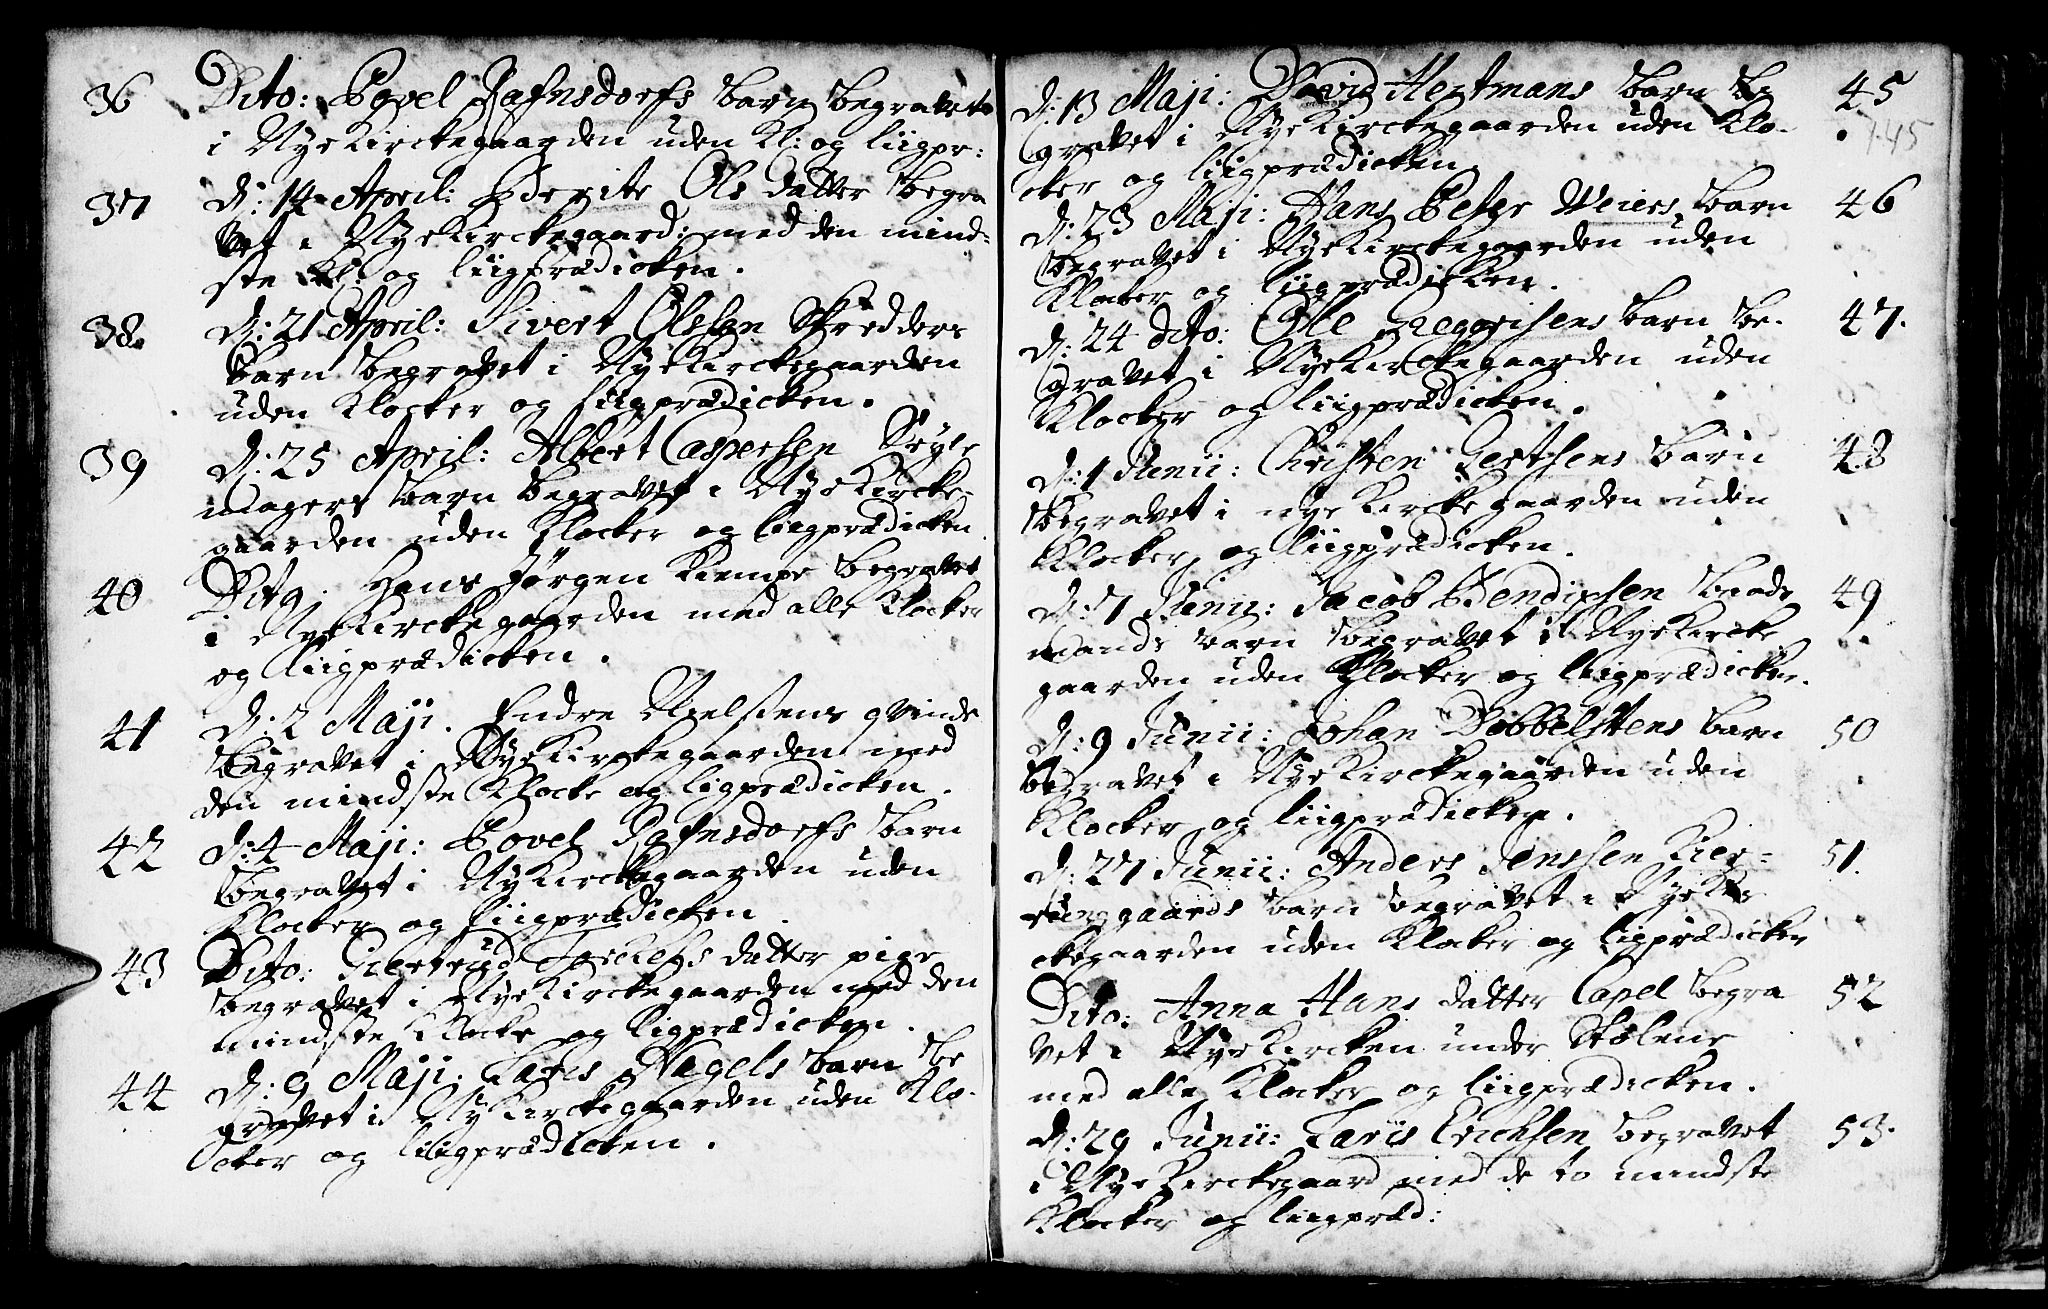 36 Dito: Povel Rafnsdorfs barn begravet
i Nye Kirckegaarden uden Kl: og liigpr:
37 D: 14 April: Ole datter begra
vet i Nye Kirckegaard: med den mind-
ste Kl: og liigprædicken.
38. D: 21 April: Sivert Olssen Skredders
barn begravet i Nye Kirckegaarden
uden Klocker og liigprædicken.
39 D: 25 April: Albert Caspersen
magers barn begravet i Nye Kircke-
gaarden uden Klocker og liigprædicken.
40 Dito. Hans Jørgen Kiempe begravet
i Nye Kirckegaarden med alle Klocker
og liigprædicken.
41 D: 2 Maji. Endre Nielsens qvinde
begravet i Nye Kirckegaarden med
den mindste Klocke og ligprædicken.
42 D: 4 Maji: Povel Rafnsdorfs barn
begravet i Ny Kirckegaarden uden
Klocker og liigprædicken.
43 Dito: Giertrud datter pige
begravet i Nye Kirckegaarden med den
mindste Klocke og ligprædicken.
44 D: 9 Maji: Lars Nagels barn be
gravet i Ny Kirckegaarden uden Klo-
cker og liigprædicken.
D: 13 Maji: David Hertmans barn be 45
gravet i Nye Kirckegaarden uden Klo- 145
cker og liigprædicken
D: 23 Maji: Hans Peter Meiers barn 46
begravet i Nye Kirckegaarden uden
Klocker og liigprædicken.
D: 24 dito: Ole Gregorisens barn be- 47.
gravet i Nye Kirckegaarden uden
Klocker og liigprædicken.
D: 1 Junii: Christen Gertsens barn 48
begravet i nye Kirckegaarden uden
Klocker og liigprædicken.
D: 7 Junii: Jacob Bendixsen baads 49
mands barn begravet i Nye Kircke
gaarden uden Klocker og liigprædicken.
D: 9 Junii: Johan Dobbelstens barn 50
begravet i Nye Kirckegaarden uden
Klocker og liigprædicken.
D: 27 Junii: Anders Jenssen Kier- 51.
gaards barn begravet i Nye Kir
ckegaarden uden Klocker og ligprædicken
Dito: Anna Hans datter Capel begra 52
vet i Nye Kircken under Stolene
med alle Klocker og liigprædicken.
D: 29 Junii: Laris Erichsen begravet 53.
i Nye Kirckegaard med de to mindste
Klocker og liigpræd: